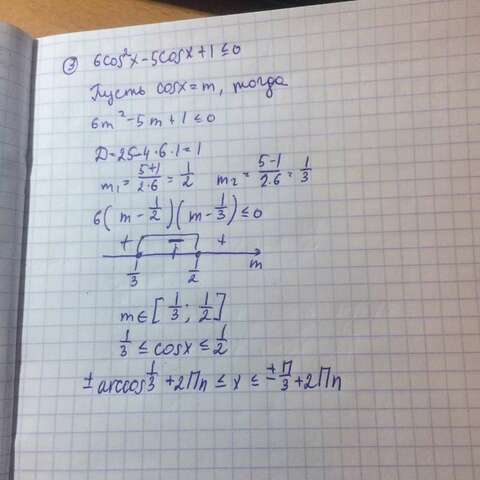 ③ 6cos²x-5cosx+1≤0
Пусть cosx=m, тогда
6m²-5m+1≤0
D=25-4·6·1=1
m₁=(5+1)/(2·6)=1/2 m₂=(5-1)/(2·6)=1/3
6(m-1/2)(m-1/3)≤0
+ - +
1/3 1/2 m
m∈[1/3; 1/2]
1/3≤cosx≤1/2
±arccos1/3+2Пn≤x≤±П/3+2Пn